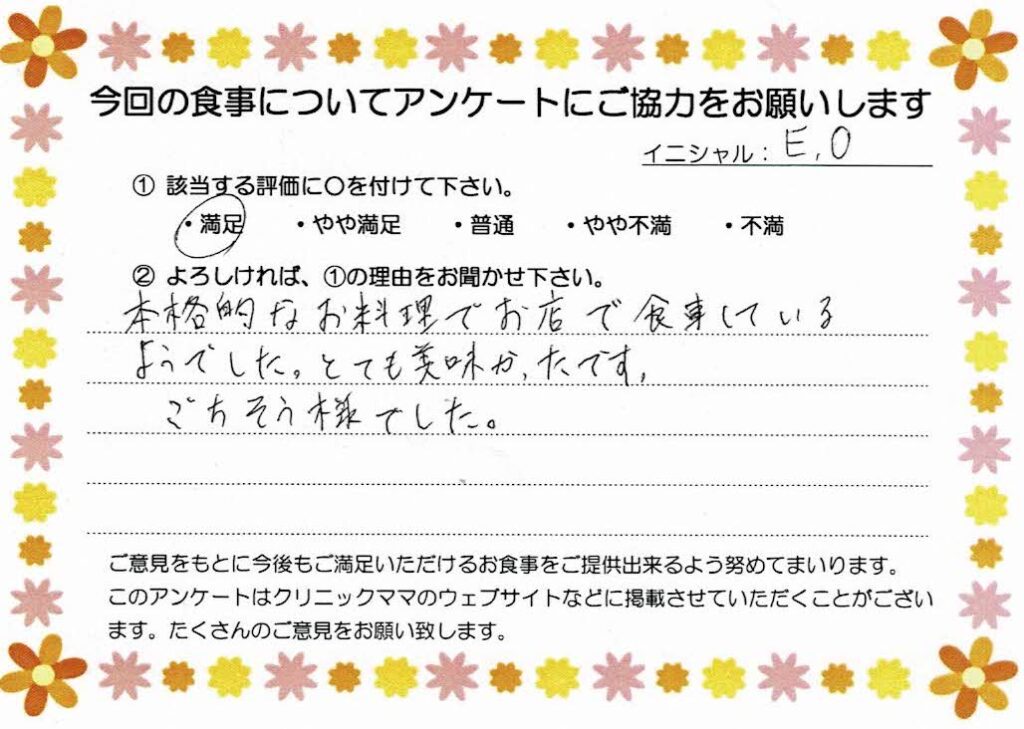 今回の食事についてアンケートにご協力をお願いします
イニシャル： E,O
① 該当する評価に〇を付けて下さい。
・満足 ・やや満足 ・普通 ・やや不満 ・不満
② よろしければ、①の理由をお聞かせ下さい。
本格的なお料理でお店で食事している
ようでした。とても美味かったです。
ごちそう様でした。
ご意見をもとに今後もご満足いただけるお食事をご提供出来るよう努めてまいります。
このアンケートはクリニックママのウェブサイトなどに掲載させていただくことがござい
ます。たくさんのご意見をお願い致します。